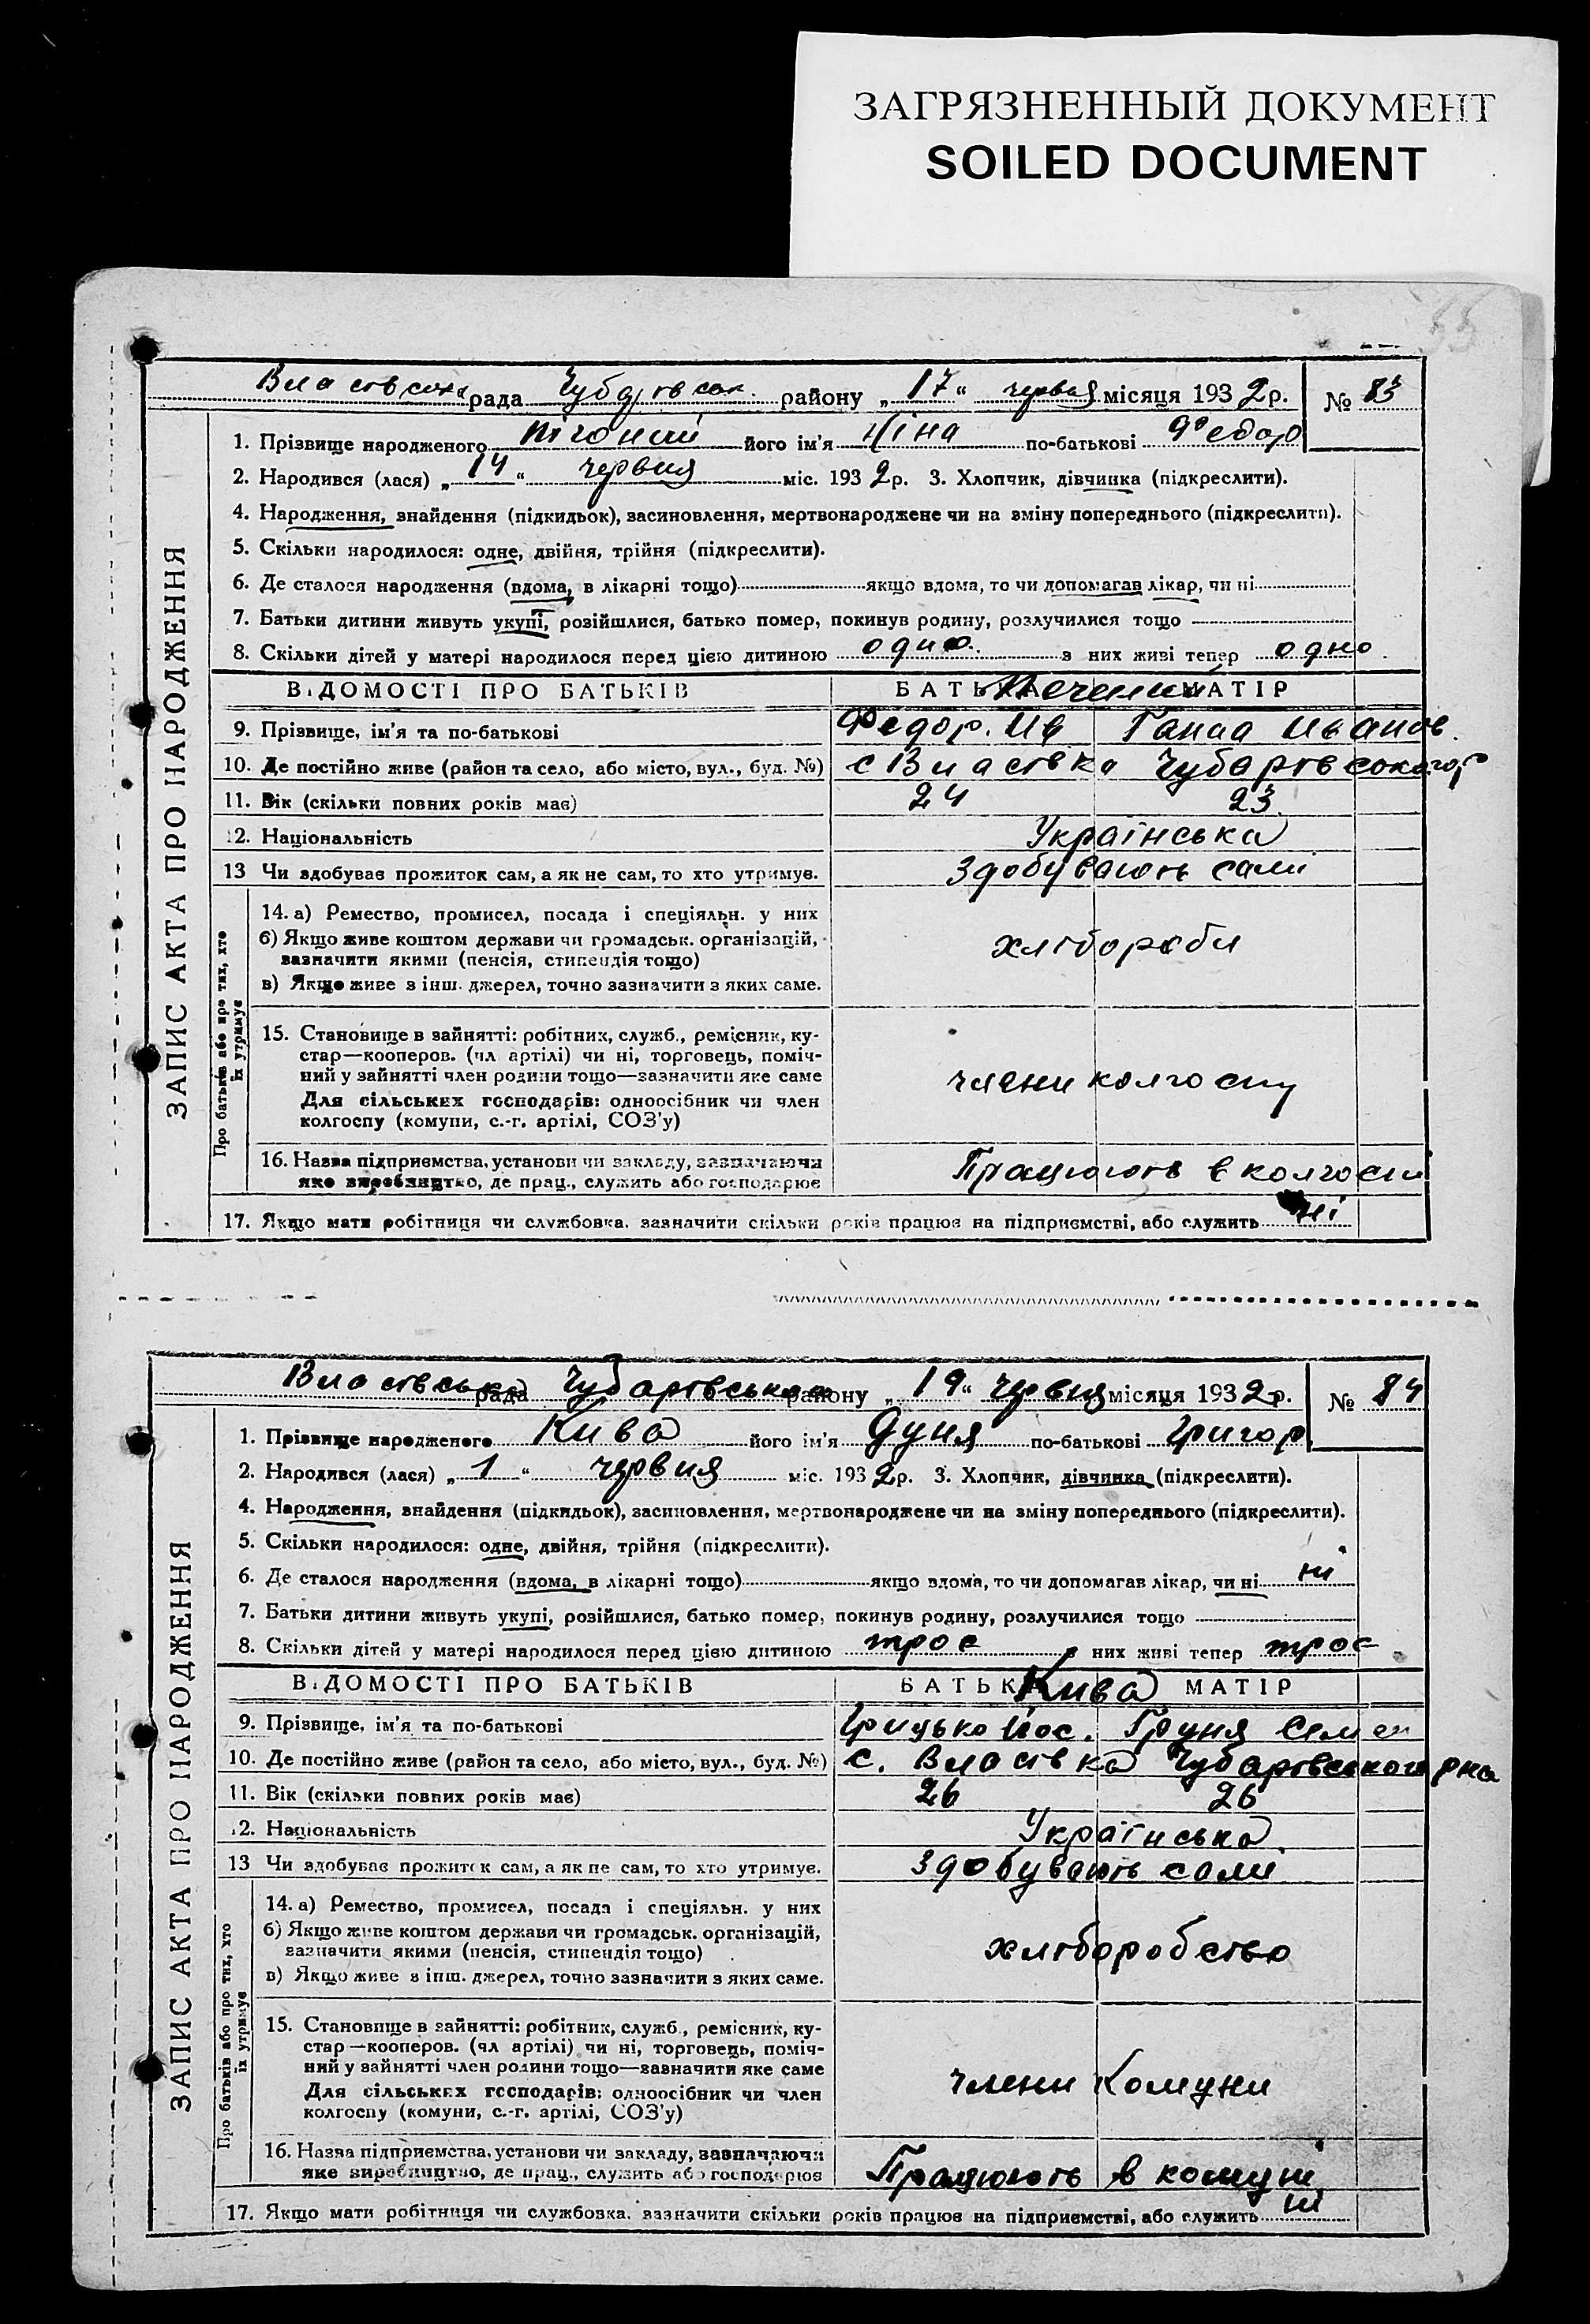 ЗАГРЯЗНЕННЫЙ ДОКУМЕНТ
SOILED DOCUMENT
55
рада района „ 17 “ червня місяця 1932 р. № 83
ЗАПИС АКТА ПРО НАРОДЖЕННЯ
1. Прізвище народженого його ім'я Ніна по-батькові Федор
2. Народився (лася) „ 14 “ червня міс. 1932 р. 3. Хлопчик, дівчинка (підкреслити).
4. Народження, знайдення (підкидьок), засиновлення, мертвонароджене чи на зміну попереднього (підкреслити).
5. Скільки народилося: одне, двійня, трійня (підкреслити).
6. Де сталося народження (вдома, в лікарні тощо) якщо вдома, то чи допомагав лікар, чи ні
7. Батьки дитини живуть укупі, розійшлися, батько помер, покинув родину, розлучилися тощо
8. Скільки дітей у матері народилося перед цією дитиною одно з них живі тепер одно
ВІДОМОСТІ ПРО БАТЬКІВ БАТЬКО МАТІР
9. Прізвище, ім'я та по-батькові Федор. Ив Ганна Иванов.
10. Де постійно живе (район та село, або місто, вул., буд. №) с Властвка Чубарівського
11. Вік (скільки повних років має) 24 23
12. Національність Українська
13 Чи здобуває прожиток сам, а як не сам, то хто утримує. Здобувають самі
Про батьків або про тих, хто їх утримує
14. а) Ремество, промисел, посада і спеціяльн. у них
б) Якщо живе коштом держави чи громадськ. організацій,
зазначити якими (пенсія, стипендія тощо)
в) Якщо живе з інш. джерел, точно зазначити з яких саме.
хлібороби
15. Становище в зайнятті: робітник, служб., ремісник, ку-
стар—кооперов. (чл артілі) чи ні, торговець, поміч-
ний у зайнятті член родини тощо—зазначити яке саме
Для сільських господарів: одноосібник чи член
колгоспу (комуни, с.-г. артілі, СОЗ'у)
члени колгоспу
16. Назва підприємства, установи чи закладу, зазначаючи
яке виробництво, де прац., служить або господарює
Працюють в колгоспі
17. Якщо мати робітниця чи службовка, зазначити скільки років працює на підприємстві, або служить ні
Властвська рада Чубарівського району „ 19 “ червня місяця 1932 р. № 84
ЗАПИС АКТА ПРО НАРОДЖЕННЯ
1. Прізвище народженого Кива його ім'я Дуня по-батькові Григор
2. Народився (лася) „ 1 “ червня міс. 1932 р. 3. Хлопчик, дівчинка (підкреслити).
4. Народження, знайдення (підкидьок), засиновлення, мертвонароджене чи на зміну попереднього (підкреслити).
5. Скільки народилося: одне, двійня, трійня (підкреслити).
6. Де сталося народження (вдома, в лікарні тощо) якщо вдома, то чи допомагав лікар, чи ні ні
7. Батьки дитини живуть укупі, розійшлися, батько помер, покинув родину, розлучилися тощо
8. Скільки дітей у матері народилося перед цією дитиною троє з них живі тепер троє
ВІДОМОСТІ ПРО БАТЬКІВ БАТЬКО Кива МАТІР
9. Прізвище, ім'я та по-батькові Грицько Йос. Груня Семен
10. Де постійно живе (район та село, або місто, вул., буд. №) с. Властвка Чубарівського рна
11. Вік (скільки повних років має) 26 26
12. Національність Українська
13 Чи здобуває прожиток сам, а як не сам, то хто утримує. Здобувають самі
Про батьків або про тих, хто їх утримує
14. а) Ремество, промисел, посада і спеціяльн. у них
б) Якщо живе коштом держави чи громадськ. організацій,
зазначити якими (пенсія, стипендія тощо)
в) Якщо живе з інш. джерел, точно зазначити з яких саме.
хліборобство
15. Становище в зайнятті: робітник, служб., ремісник, ку-
стар—кооперов. (чл артілі) чи ні, торговець, поміч-
ний у зайнятті член родини тощо—зазначити яке саме
Для сільських господарів: одноосібник чи член
колгоспу (комуни, с.-г. артілі, СОЗ'у)
члени Комуни
16. Назва підприємства, установи чи закладу, зазначаючи
яке виробництво, де прац., служить або господарює
Працюють в комуні
17. Якщо мати робітниця чи службовка, зазначити скільки років працює на підприємстві, або служить ні